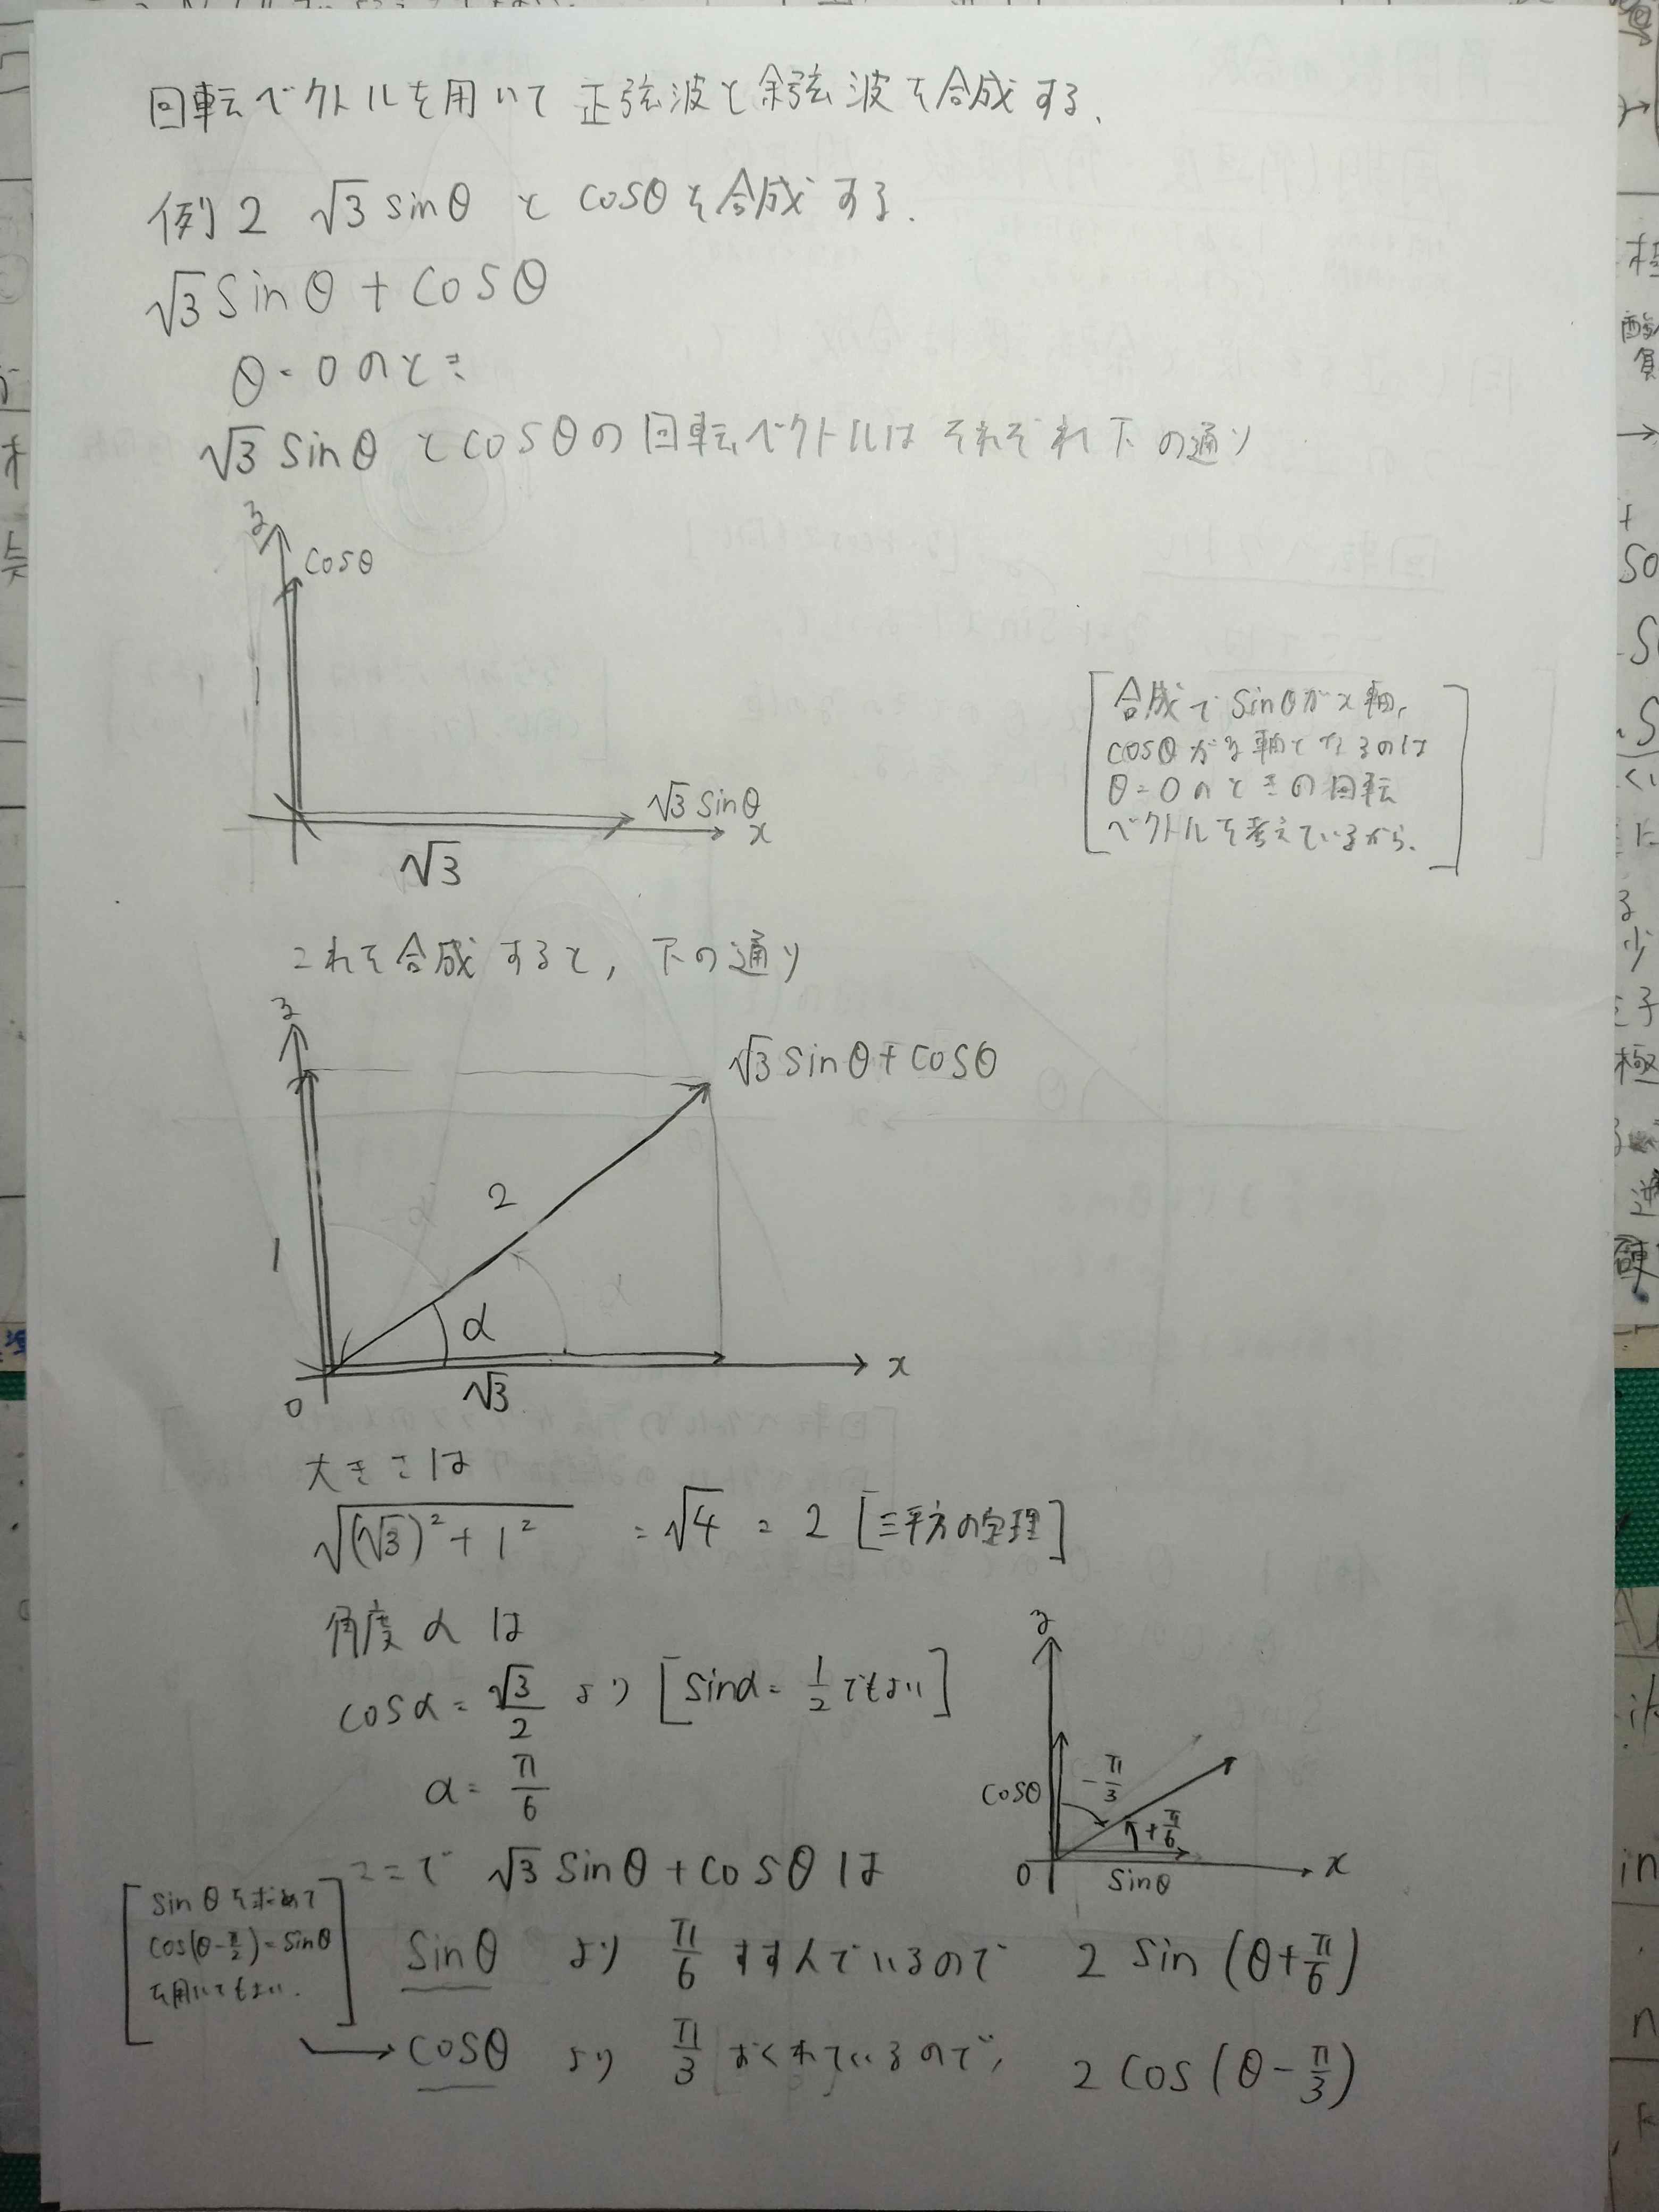 回転ベクトルを用いて正弦波と余弦波を合成する.
例2 √3 sinθ と cosθを合成する.
√3 sinθ + cosθ
θ=0のとき
√3 sinθ と cosθの回転ベクトルはそれぞれ下の通り
y
cosθ
1
√3 sinθ
x
√3
[合成で sinθがx軸,
cosθがy軸となるのは
θ=0のときの回転
ベクトルを考えているから.]
これを合成すると, 下の通り
y
√3 sinθ + cosθ
2
1
α
x
0
√3
大きさは
√((√3)² + 1²) = √4 = 2 [三平方の定理]
角度 α は
cosα = √3/2 より [sinα = 1/2 でもよい]
α = π/6
y
cosθ
-π/3
+π/6
0
sinθ
x
ここで √3 sinθ + cosθ は
[sinθを求めて
cos(θ-π/2)=sinθ
を用いてもよい.]
sinθ より π/6 すすんでいるので 2 sin(θ+π/6)
→ cosθ より π/3 おくれているので, 2 cos(θ-π/3)